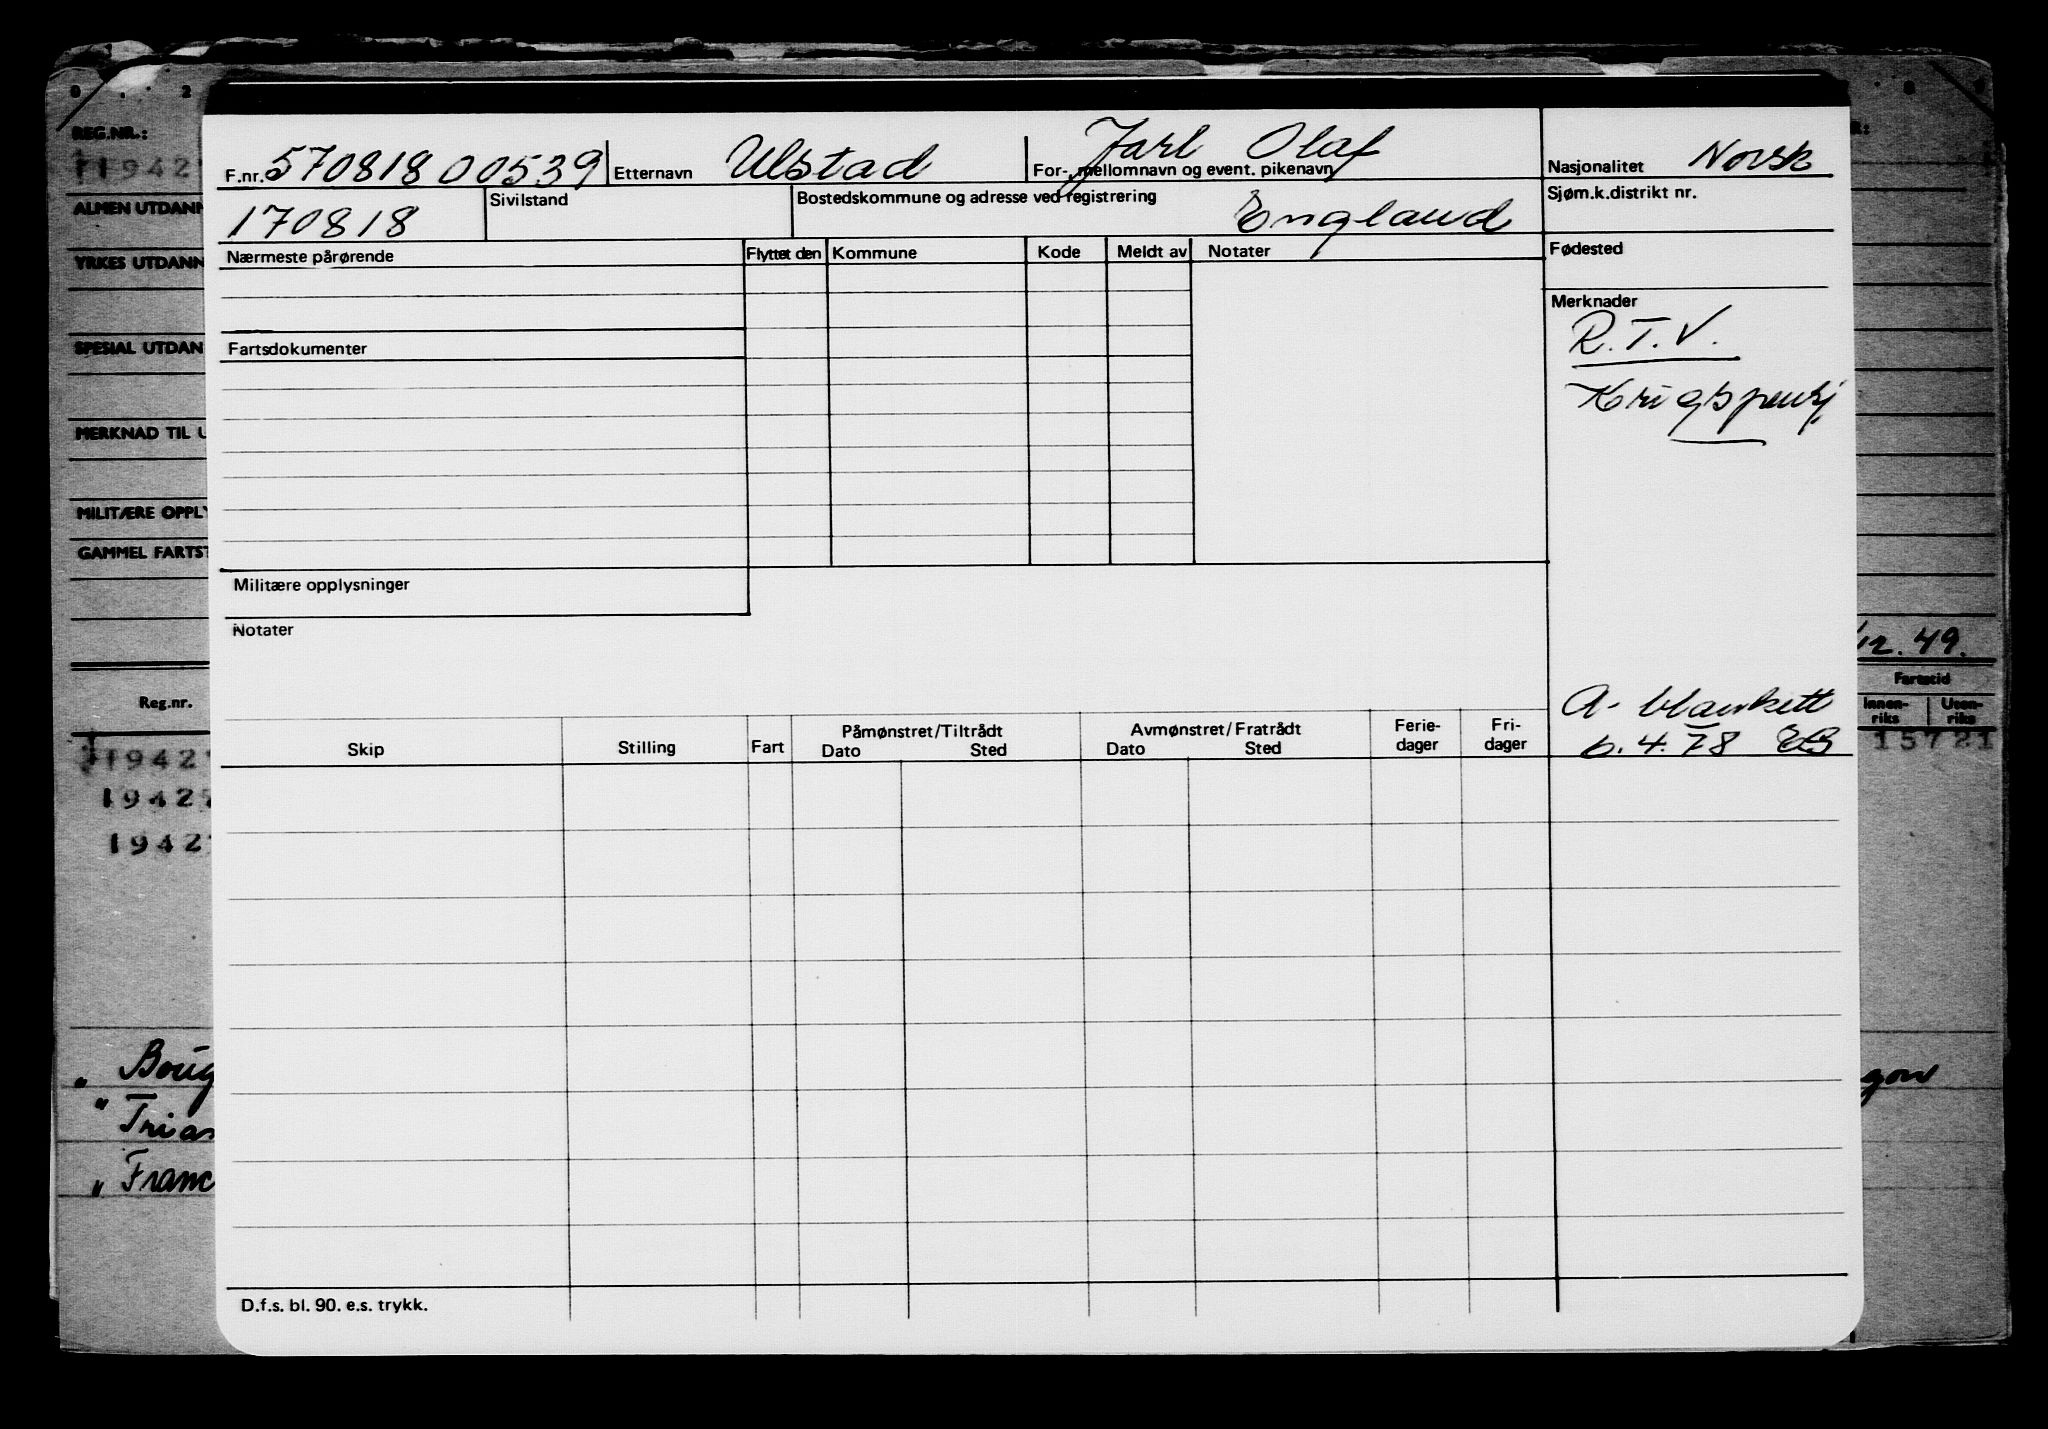 REG.NR.:
119421
ALMEN UTDANN
YRKES UTDANN
SPESIAL UTDAN
MERKNAD TIL U
MILITÆRE OPPLY
GAMMEL FARTST
Reg.nr.
19421
19422
19421
" Boug
" Trian
" Franc
F.nr. 57081800539 Etternavn Ulstad For-, mellomnavn og event. pikenavn Jarl Olaf Nasjonalitet Norsk
170818 Sivilstand Bostedskommune og adresse ved registrering England Sjøm.k.distrikt nr.
Nærmeste pårørende Flyttet den Kommune Kode Meldt av Notater Fødested
Merknader
R.T.V.
Krigspensj
Fartsdokumenter
Militære opplysninger
Notater
A-blankett
6.4.78 EB
Skip Stilling Fart Påmønstret/Tiltrådt Dato Sted Avmønstret/Fratrådt Dato Sted Ferie-dager Fri-dager
D.f.s. bl. 90. e.s. trykk.
nr. 49.
Fartstid
Innen-riks Uten-riks
15721
gow